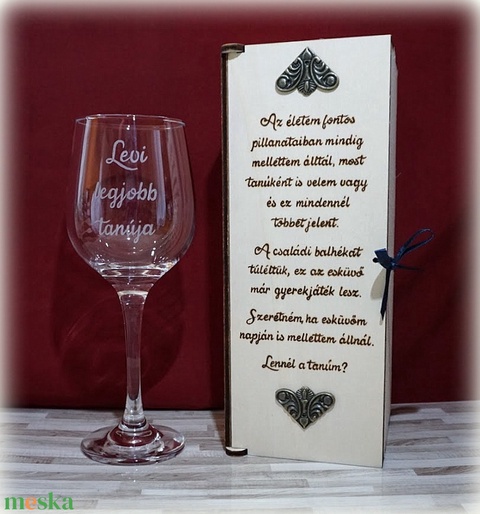 Levi
legjobb
tanúja
Az életem fontos
pillanataiban mindig
mellettem álltál, most
tanúként is velem vagy
és ez mindennél
többet jelent.
A családi balhékat
túléltük, ez az esküvő
már gyerekjáték lesz.
Szeretném, ha esküvőm
napján is mellettem állnál.
Lennél a tanúm?
meska